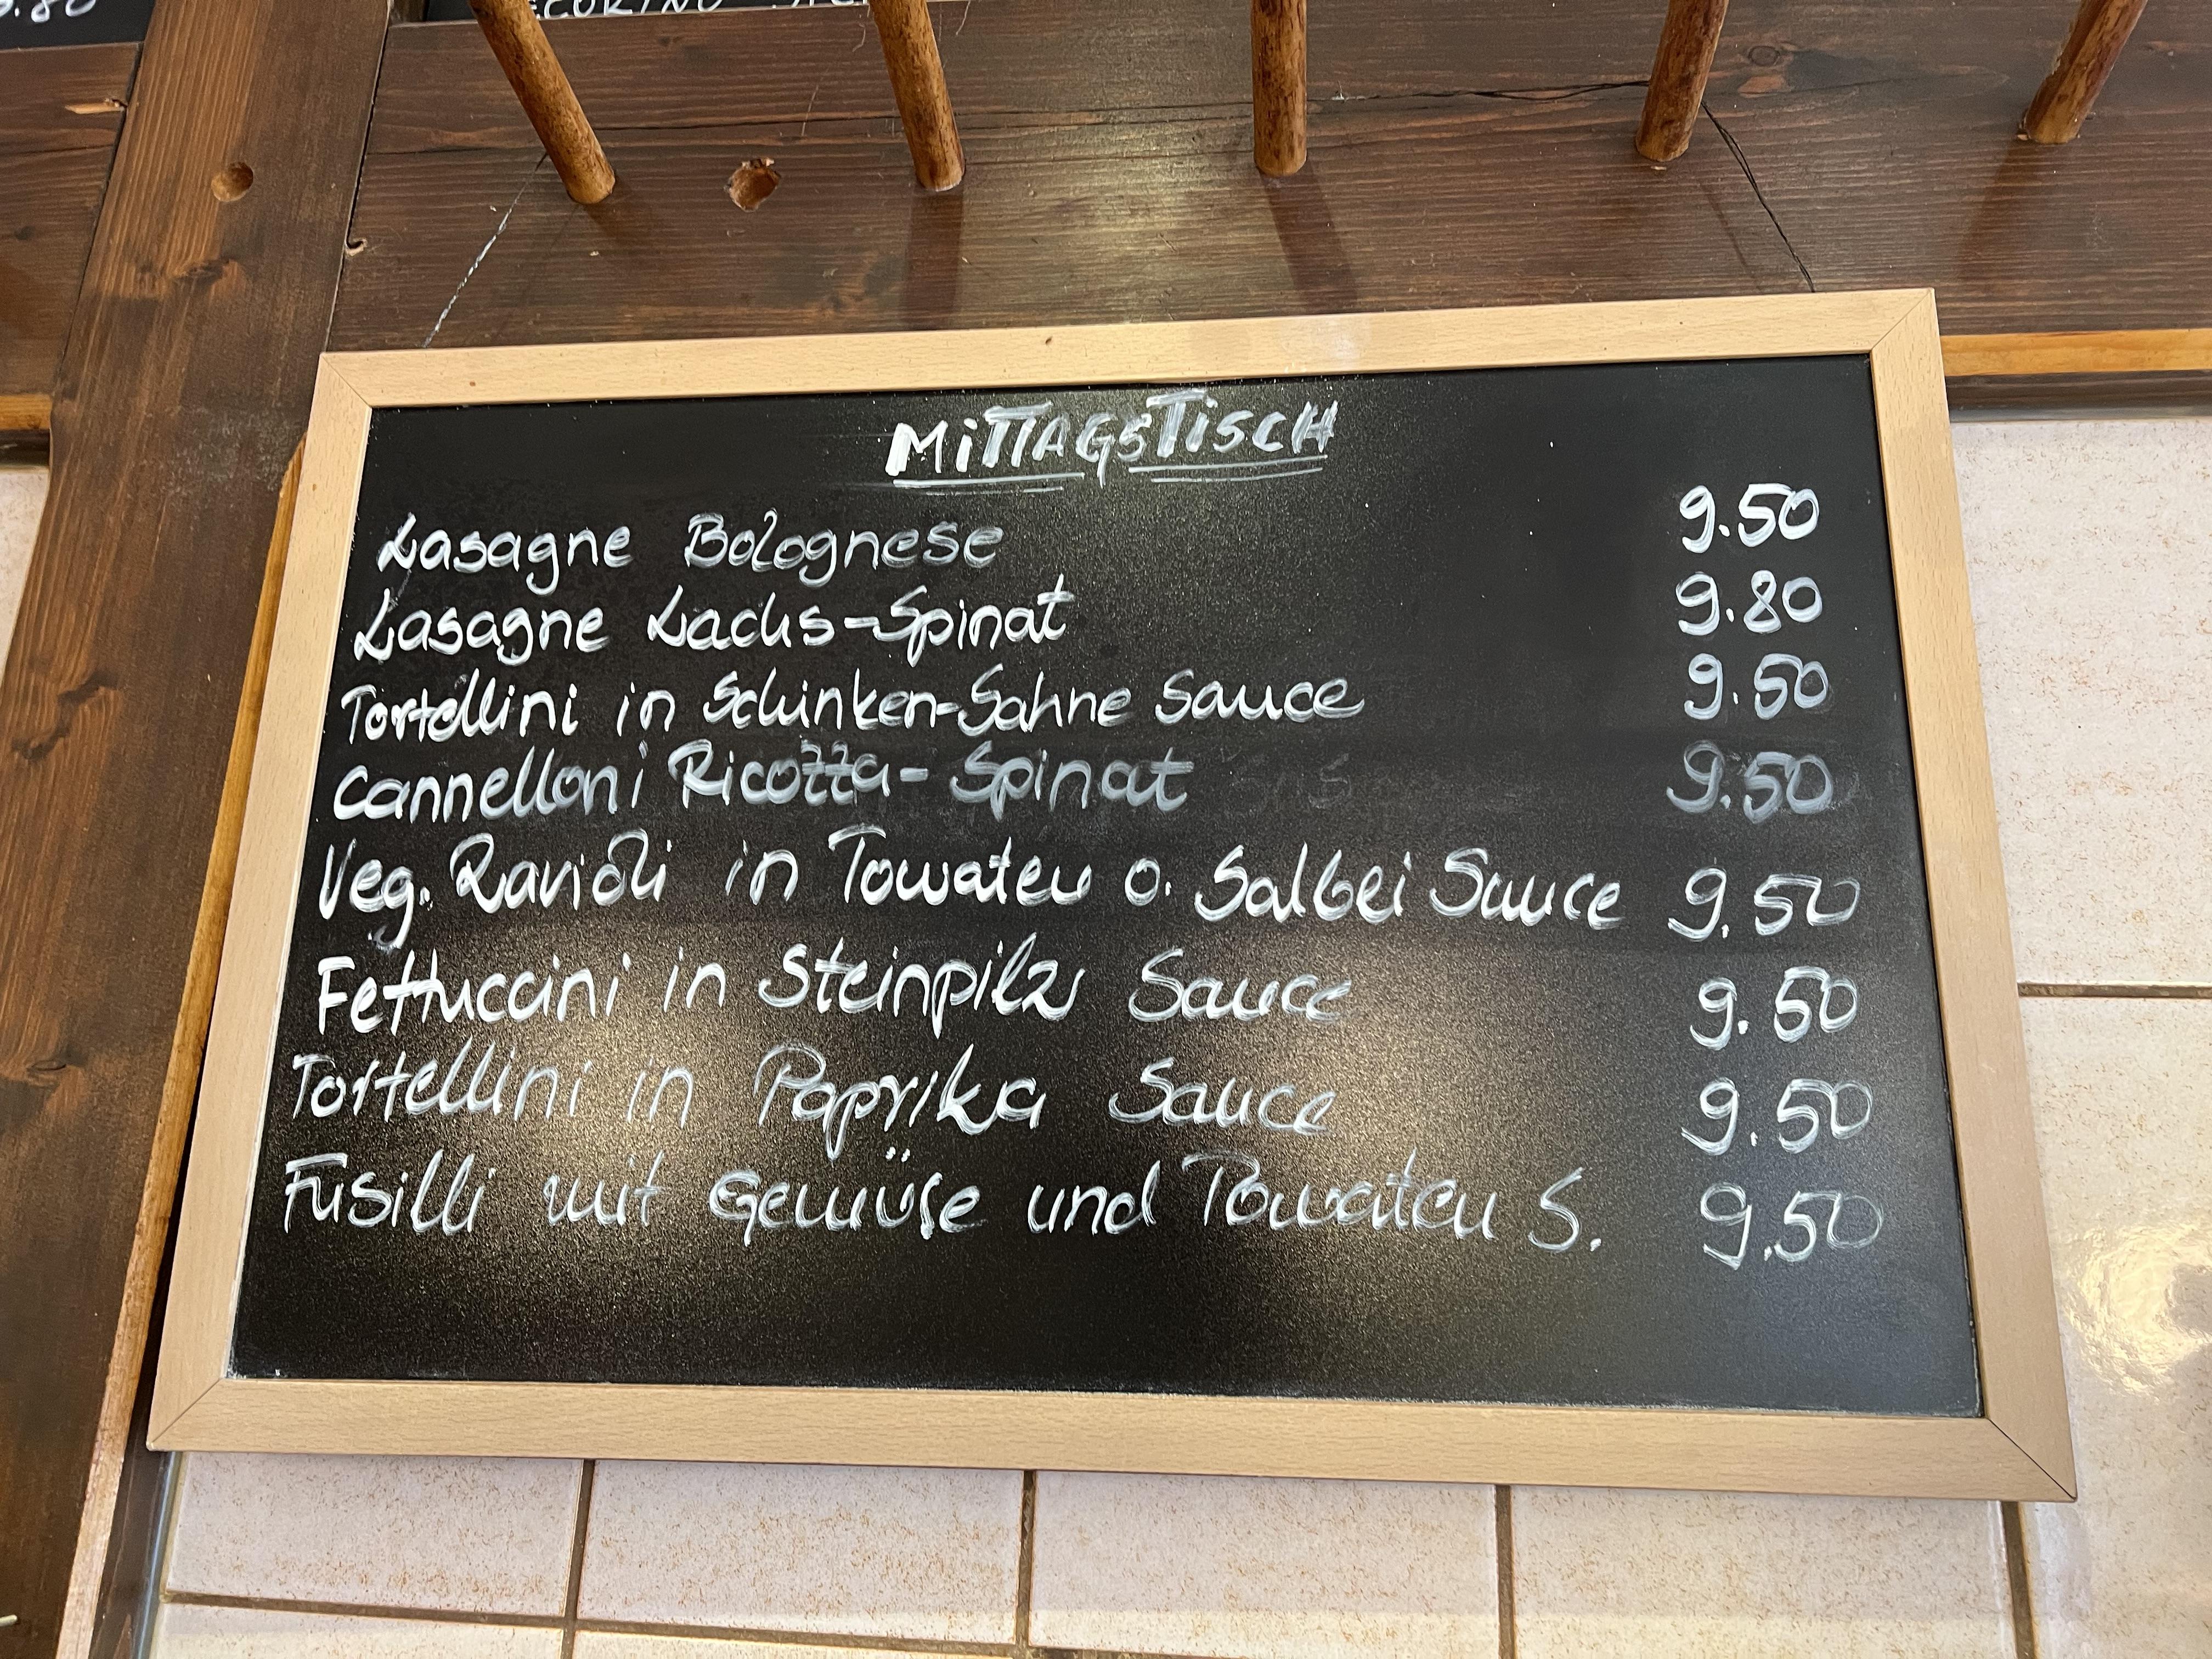 MiTTAGSTiSCH
Lasagne Bolognese 9.50
Lasagne Lachs-Spinat 9.80
Tortellini in Schinken-Sahne Sauce 9.50
Cannelloni Ricotta-Spinat 9.50
Veg. Ravioli in Tomaten o. Salbei Sauce 9.50
Fettuccini in Steinpilz Sauce 9.50
Tortellini in Paprika Sauce 9.50
Fusilli mit Gemüse und Tomaten S. 9.50